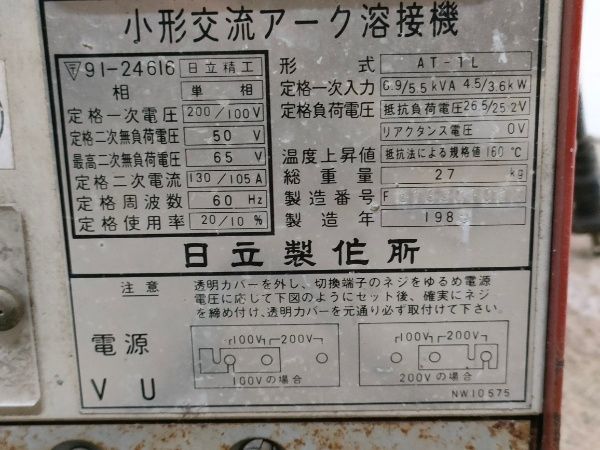 小形交流アーク溶接機
〒91-24616 日立精工
相 単相
定格一次電圧 200/100V
定格二次無負荷電圧 50 V
最高二次無負荷電圧 65 V
定格二次電流 130/105A
定格周波数 60 Hz
定格使用率 20/10 %
形式 AT-1L
定格一次入力 6.9/5.5kVA 4.5/3.6kW
定格負荷電圧 抵抗負荷電圧26.5/25.2V
リアクタンス電圧 0V
温度上昇値 抵抗法による規格値160℃
総重量 27 kg
製造番号 F
製造年 198
日立製作所
注意 透明カバーを外し、切換端子のネジをゆるめ電源
電圧に応じて下図のようにセット後、確実にネジ
を締め付け、透明カバーを元通り必ず取付けて下さい。
電源
V U
100V 200V
100Vの場合
100V 200V
200Vの場合
NW10575